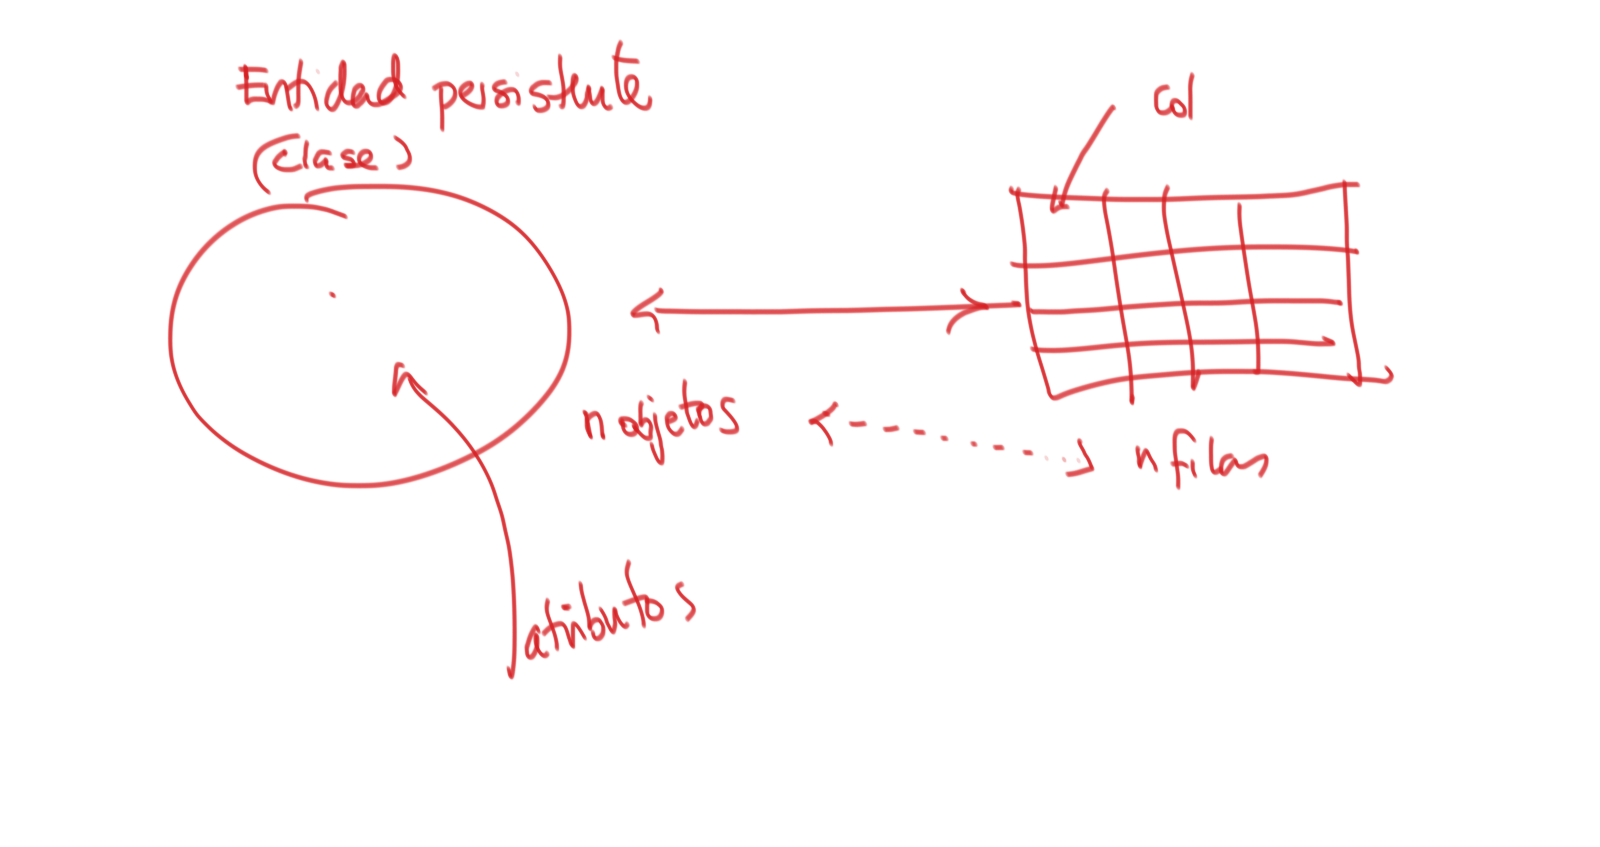 Entidad persistente
(clase)
col
n objetos
n filas
atributos